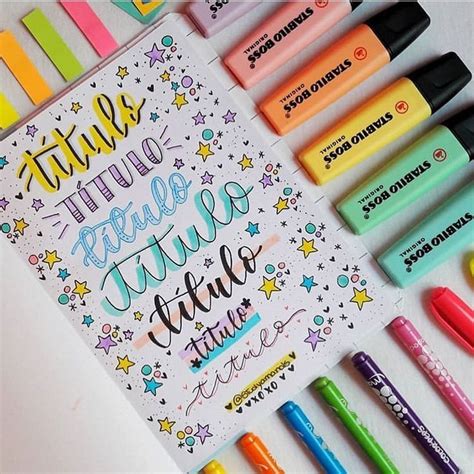 título
TÍTULO
título
Título
título
título
título
XOXO
STABILO BOSS
ORIGINAL
STABILO BOSS
ORIGINAL
STABILO BOSS
ORIGINAL
STABILO BOSS
ORIGINAL
STABILO BOSS
ORIGINAL